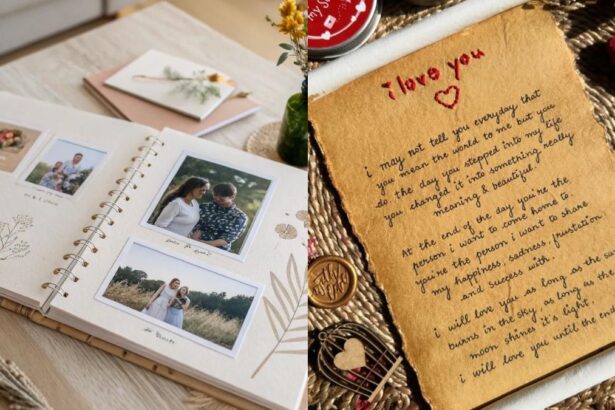 my S
i love you
i may not tell you everyday that
you mean the world to me but you
do. the day you stepped into my life
you changed it into something really
meaning & beautiful.
At the end of the day you're the
person i want to come home to.
you're the person i want to share
my happiness, sadness, frustation
and success with.
i will love you as long as the su
burns in the sky, as long as the
moon shines it's light.
i will love you until the end